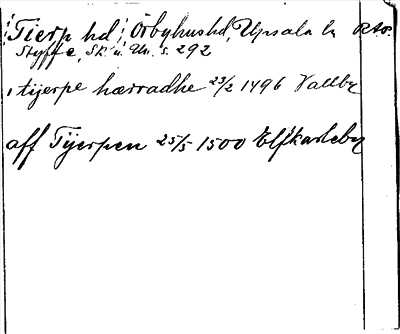 ¦Tierp hd¦, Örbyhus hd, Upsala ln
Styffe, Sk. u. Un. s. 292
i tijerpe hærradhe 23/2 1496 Vallby
aff Tijerpen 25/5 1500 Elfkarleby